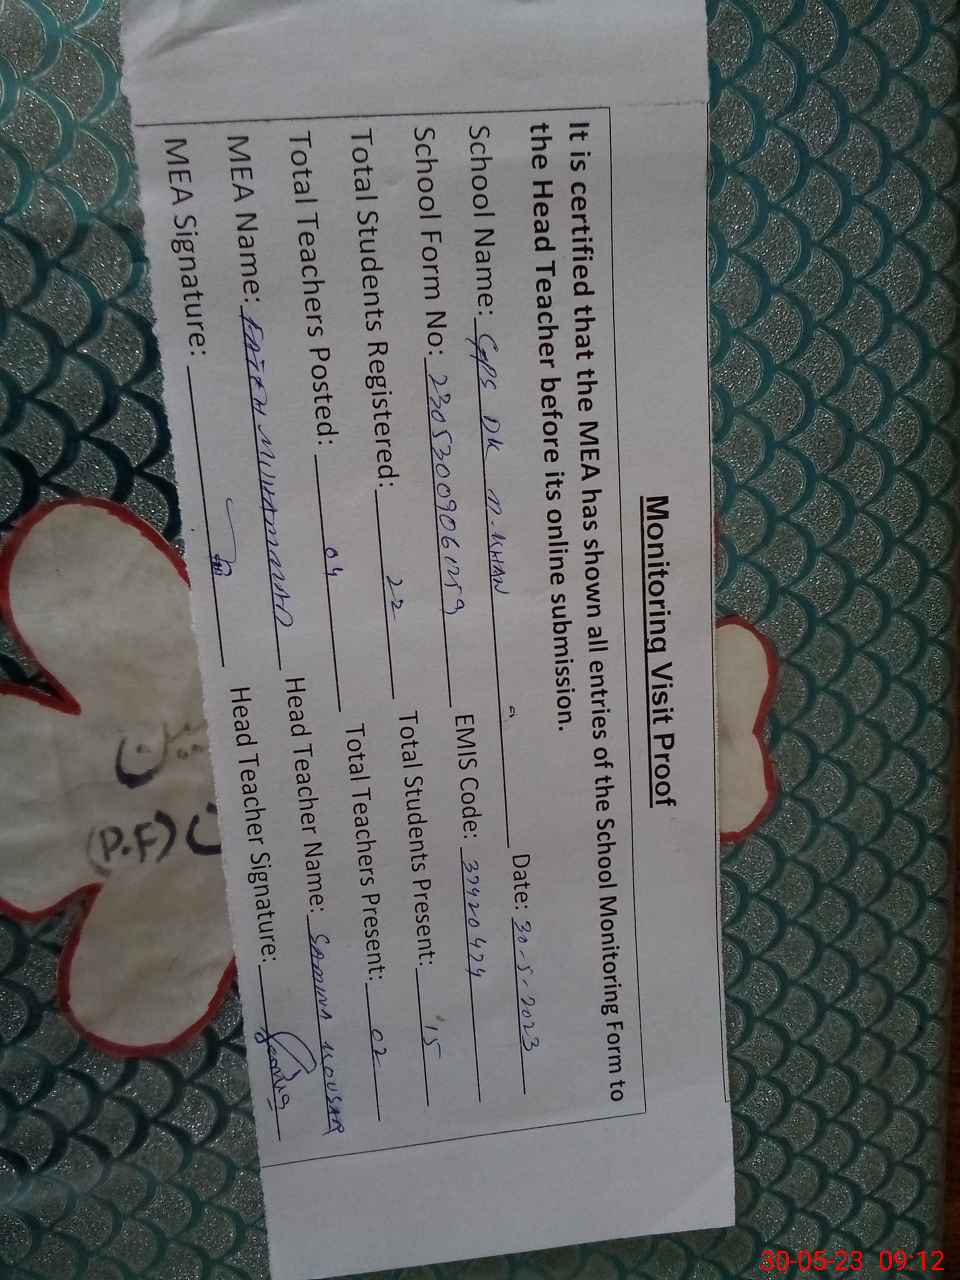 Monitoring Visit Proof
It is certified that the MEA has shown all entries of the School Monitoring Form to
the Head Teacher before its online submission.
School Name: GPS DK N. KHAN Date: 30-5-2023
School Form No: 2305300906 EMIS Code: 39420474
Total Students Registered: 22 Total Students Present: 15
Total Teachers Posted: 04 Total Teachers Present: 02
MEA Name: FATEH MUHAMMAD Head Teacher Name: SAMINA KOUSAR
MEA Signature: Head Teacher Signature:
(P.F)
30-05-23 09:12